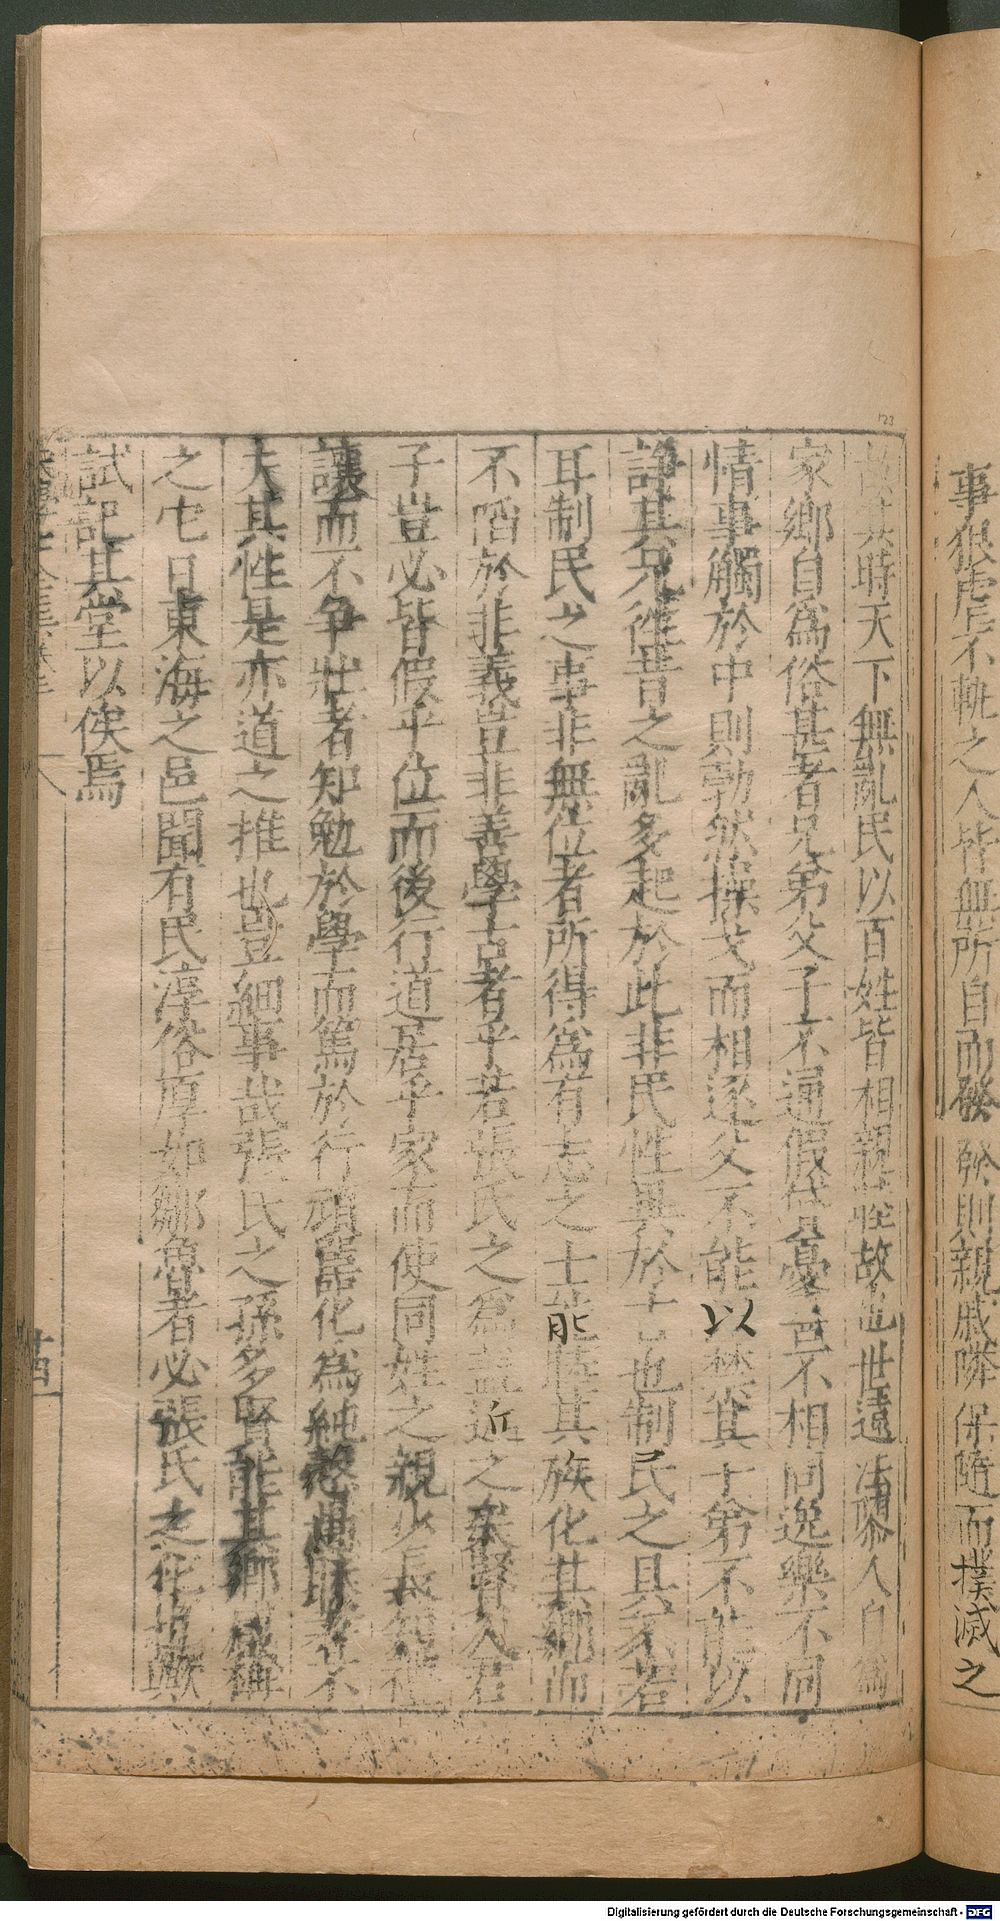 事狠虐不軌之人皆無所自而發然則親戚隣保隨而撲滅之
故其時天下無亂民以百姓皆相親睦故也世遠法隳人自為
家鄉自為俗甚者兄弟父子不通假貸憂喜不相同逸樂不同
情事觸於中則勃然操戈而相逐父不能以禁其子弟不能以
諍其兄從昔之亂多起於此非民性異於古也制民之具不若
耳制民之事非無位者所得為有志之士能睦其族化其鄉而
不悖於非義豈非善學古者乎若張氏之為蓋近之矣賢人君
子豈必皆假乎位而後行道居乎家而使同姓之親少長知禮
讓而不爭壯者知勉於學而篤於行頑嚚化為純愨愚駿者不
失其性是亦道之推也豈細事哉張氏之孫多賢能其鄉咸稱
之它日東海之邑聞有民淳俗厚如鄒魯者必張氏之化也歟
試記其堂以俟焉
廿四
123
Digitalisierung gefördert durch die Deutsche Forschungsgemeinschaft - DFG